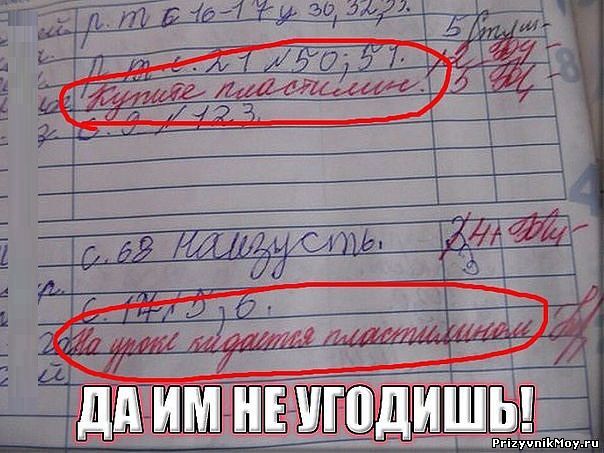 р. т с 16-17 у 30, 32,33. 5
р. т с. 21 № 50; 51.
Купите пластилин. 5
с. 9 № 123.
с. 68 наизусть. 4+
с. 14 № 5, 6.
На уроке кидается пластилином
ДА ИМ НЕ УГОДИШЬ!
PrizyvnikMoy.ru